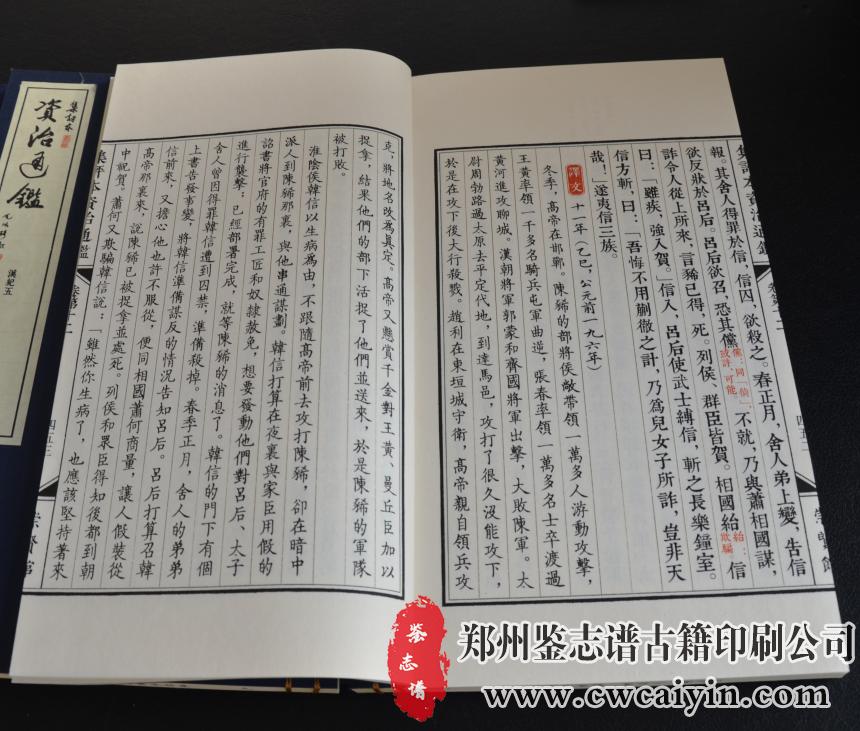 集評本資治通鑑
卷第十二
四五二
報。其舍人得罪於信，信囚，欲殺之。春正月，舍人弟上變，告信
欲反狀於呂后。呂后欲召，恐其儻
儻：同「倘」，或許，可能。
不就，乃與蕭相國謀，
詐令人從上所來，言豨已得，死。列侯、群臣皆賀。相國紿
紿：欺騙
信
曰：「雖疾，強入賀。」信入，呂后使武士縛信，斬之長樂鐘室。
信方斬，曰：「吾悔不用蒯徹之計，乃為兒女子所詐，豈非天
哉！」遂夷信三族。
譯文
十一年（乙巳，公元前一九六年）
冬季，高帝在邯鄲。陳豨的部將侯敞帶領一萬多人游動攻擊，
王黃率領一千多名騎兵屯軍曲逆，張春率領一萬多名士卒渡過
黃河進攻聊城。漢朝將軍郭蒙和齊國將軍出擊，大敗陳軍。太
尉周勃路過太原去平定代地，到達馬邑，攻打了很久沒能攻下，
於是在攻下後大行殺戮。趙利在東垣城守衛，高帝親自領兵攻
克，將地名改為真定。高帝又懸賞千金對王黃、曼丘臣加以
捉拿，結果他們的部下活捉了他們並送來，於是陳豨的軍隊
被打敗。
淮陰侯韓信以生病為由，不跟隨高帝前去攻打陳豨，卻在暗中
派人到陳豨那裏，與他串通謀劃。韓信打算在夜裏與家臣用假的
詔書將官府的有罪工匠和奴隸赦免，想要發動他們對呂后、太子
進行襲擊；已經部署完成，就等陳豨的消息了。韓信的門下有個
舍人曾因得罪韓信遭到囚禁，準備殺掉。春季正月，舍人的弟弟
上書告發事變，將韓信準備謀反的情況告知呂后。呂后打算召韓
信前來，又擔心他也許不服從，便同相國蕭何商量，讓人假裝從
高帝那裏來，說陳豨已被捉拿並處死。列侯和眾臣得知後都到朝
中祝賀。蕭何又欺騙韓信說：「雖然你生病了，也應該堅持著來
集評本資治通鑑
卷第十二
四五三
崇賢館
集評本
資治通鑑
漢紀五
鉴志谱
郑州鉴志谱古籍印刷公司
www.cwcaiyin.com